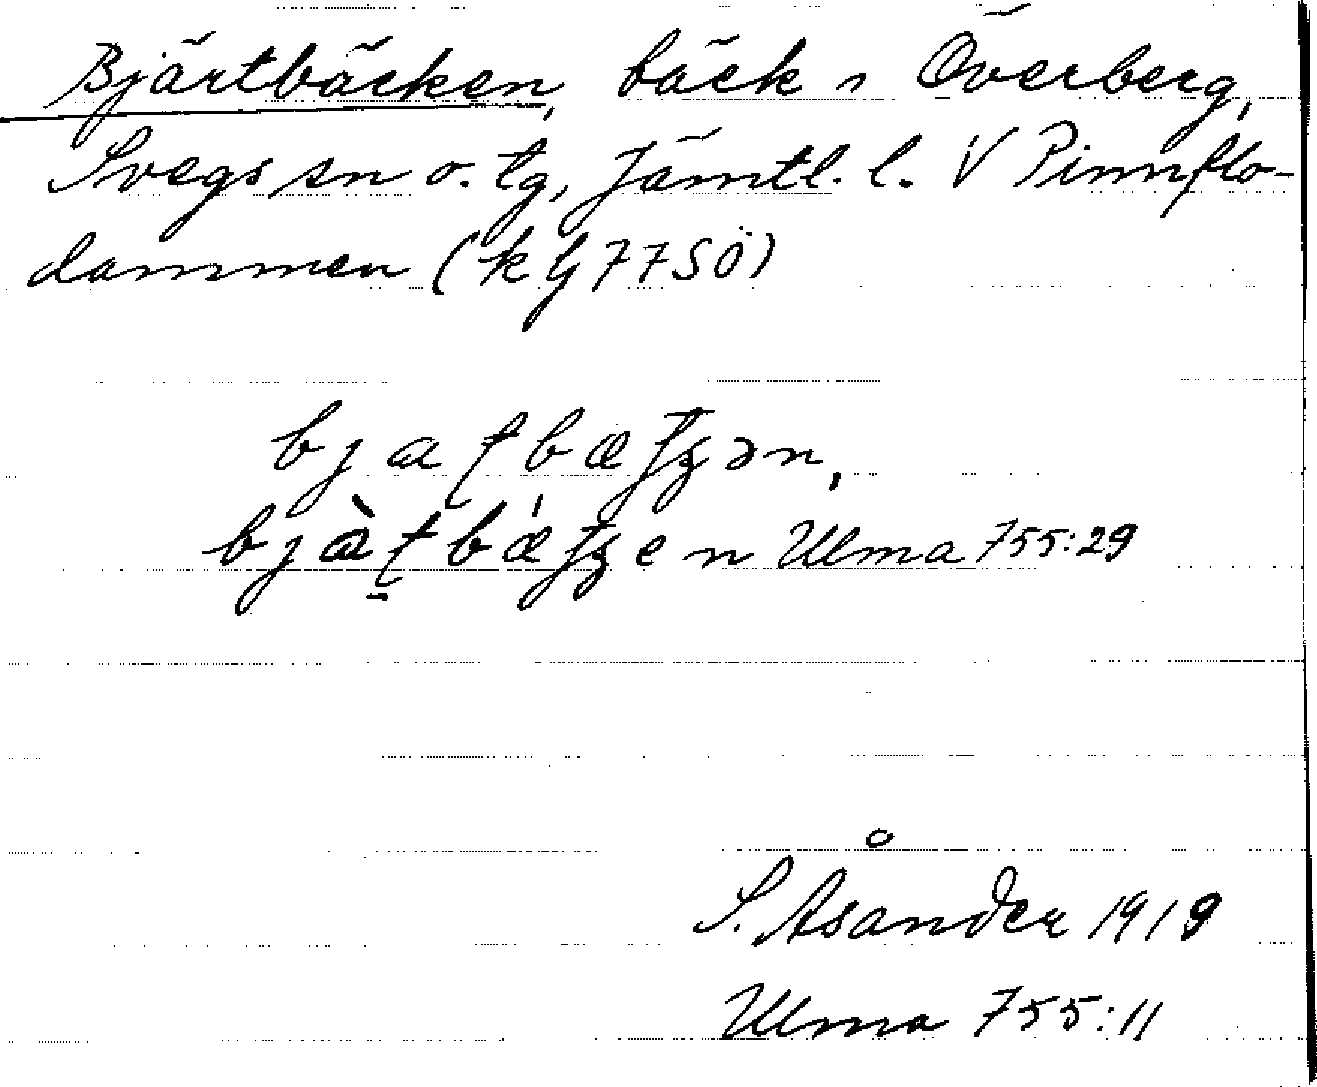 Bjärtbäcken, bäck i Överberg,
Svegs sn o. tg, Jämtl. l. V Pinnflo-
dammen (k bl 77 SÖ)
Ulma 755:29
S. Åsander 1919
Ulma 755:11